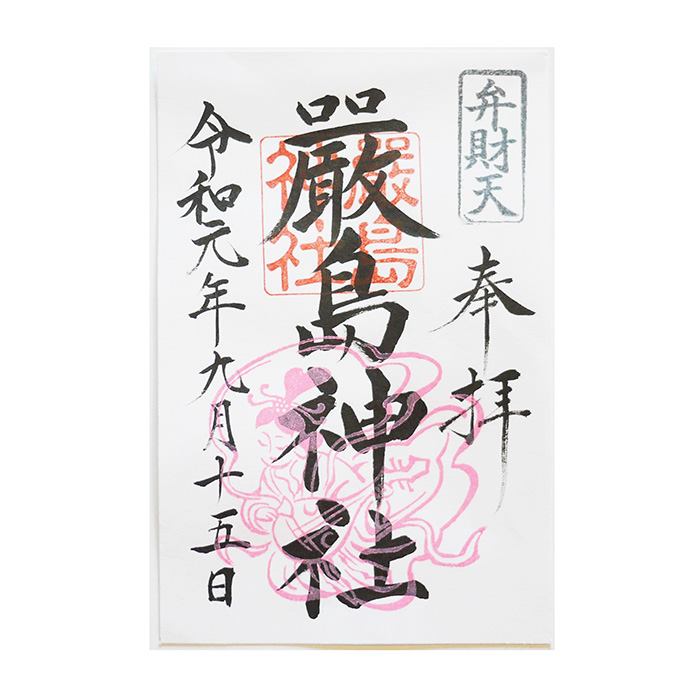 弁財天
奉拝
嚴島神社
嚴島
神社
令和元年九月十五日